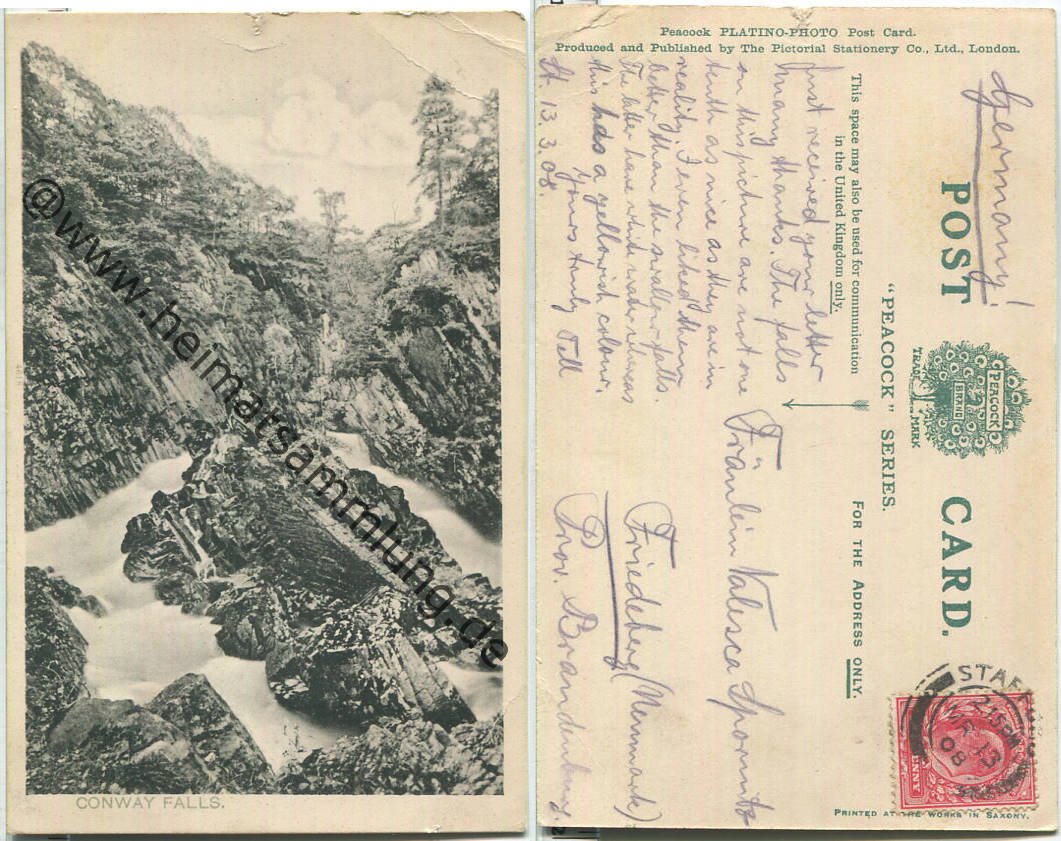 CONWAY FALLS.
@www.heimatsammlung.de
Peacock PLATINO-PHOTO Post Card.
Produced and Published by The Pictorial Stationery Co., Ltd., London.
POST CARD.
PEACOCK
BRAND
TRADE MARK
"PEACOCK" SERIES.
This space may also be used for communication
in the United Kingdom only.
FOR THE ADDRESS ONLY.
Germany!
Just received your letter
many thanks. The falls
on this picture are not one
tenth as nice as they are in
reality. I even liked them
better than the swallow-falls.
The latter have white water whereas
this has a yellowish colour.
Yours truly
St. 13.3.08.
Fräulein Valesca Spornitz
Friedeberg (Neumark)
Prov. Brandenburg.
2 15 PM
MR 13
08
PENNY
PRINTED AT THE WORKS IN SAXONY.